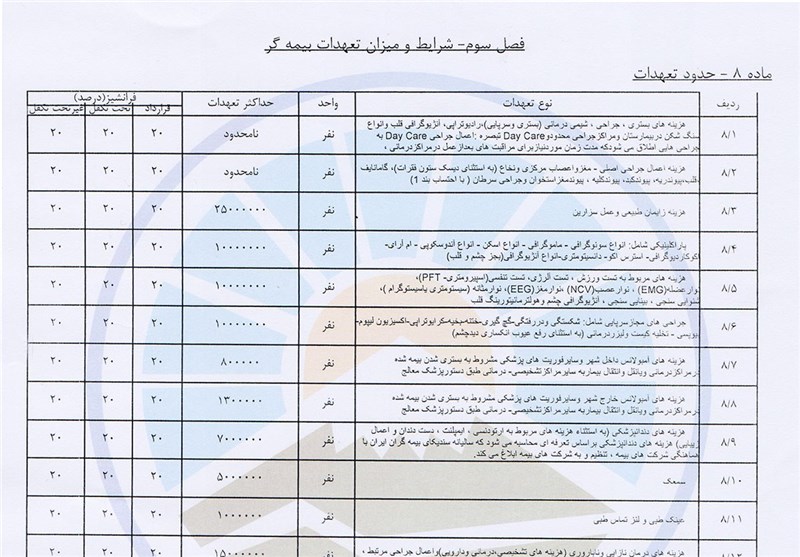 فصل سوم- شرایط و میزان تعهدات بیمه گر
ماده ۸ - حدود تعهدات
ردیف نوع تعهدات واحد حداکثر تعهدات فرانشیز(درصد)
قرارداد تحت تکفل غیرتحت تکفل
۸/۱ هزینه های بستری ، جراحی ، شیمی درمانی (بستری وسرپایی)،رادیوتراپی، آنژیوگرافی قلب وانواع
سنگ شکن دربیمارستان ومراکزجراحی محدودوDay Care تبصره :اعمال جراحی Day Care به
جراحی هایی اطلاق می شودکه مدت زمان موردنیازبرای مراقبت های بعدازعمل درمراکزدرمانی ،
نفر نامحدود ۲۰ ۲۰ ۲۰
۸/۲ هزینه اعمال جراحی اصلی - مغزواعصاب مرکزی ونخاع (به استثنای دیسک ستون فقرات)، گامانایف
،قلب،پیوندریه، پیوندکبد، پیوندکلیه ، پیوندمغزاستخوان وجراحی سرطان ( با احتساب بند 1)
نفر نامحدود ۲۰ ۲۰ ۲۰
۸/۳ هزینه زایمان طبیعی وعمل سزارین نفر ۲۵۰۰۰۰۰۰ ۲۰ ۲۰ ۲۰
۸/۴ پاراکلینیکی شامل: انواع سونوگرافی - ماموگرافی - انواع اسکن - انواع آندوسکوپی - ام آرای-
اکوکاردیوگرافی- استرس اکو- دانسیتومتری-انواع آنژیوگرافی(بجز چشم و قلب)
نفر ۱۰۰۰۰۰۰۰ ۲۰ ۲۰ ۲۰
۸/۵ هزینه های مربوط به تست ورزش ، تست آلرژی، تست تنفسی(اسپیرومتری- PFT)،
نوارعضله(EMG) ، نوارعصب(NCV) ،نوارمغز(EEG)، نوارمثانه (سیستومتری یاسیستوگرام )،
شنوایی سنجی ، بینایی سنجی ، آنژیوگرافی چشم وهولترمانیتورینگ قلب
نفر ۱۰۰۰۰۰۰۰ ۲۰ ۲۰ ۲۰
۸/۶ جراحی های مجازسرپایی شامل: شکستگی ودررفتگی-گچ گیری-ختنه-بخیه-کرایوتراپی-اکسیزیون لیپوم-
بیوپسی - تخلیه کیست ولیزردرمانی (به استثنای رفع عیوب انکساری دیدچشم)
نفر ۱۰۰۰۰۰۰۰ ۲۰ ۲۰ ۲۰
۸/۷ هزینه های آمبولانس داخل شهر وسایرفوریت های پزشکی مشروط به بستری شدن بیمه شده
درمراکزدرمانی ویانقل وانتقال بیماربه سایرمراکزتشخیصی- درمانی طبق دستورپزشک معالج
نفر ۸۰۰۰۰۰ ۲۰ ۲۰ ۲۰
۸/۸ هزینه های آمبولانس خارج شهر وسایرفوریت های پزشکی مشروط به بستری شدن بیمه شده
درمراکزدرمانی ویانقل وانتقال بیماربه سایرمراکزتشخیصی- درمانی طبق دستورپزشک معالج
نفر ۱۳۰۰۰۰۰ ۲۰ ۲۰ ۲۰
۸/۹ هزینه های دندانپزشکی (به استثناء هزینه های مربوط به ارتودنسی ، ایمپلنت ، دست دندان و اعمال
زیبایی) هزینه های دندانپزشکی براساس تعرفه ای محاسبه می شود که سالیانه سندیکای بیمه گران ایران با
هماهنگی شرکت های بیمه ، تنظیم و به شرکت های بیمه ابلاغ می کند.
نفر ۷۰۰۰۰۰۰ ۲۰ ۲۰ ۲۰
۸/۱۰ سمعک نفر ۵۰۰۰۰۰۰ ۲۰ ۲۰ ۲۰
۸/۱۱ عینک طبی و لنز تماس طبی نفر ۱۰۰۰۰۰۰ ۲۰ ۲۰ ۲۰
هزینه های درمان نازایی وناباروری (هزینه های تشخیصی،درمانی ودارویی)واعمال جراحی مرتبط ،